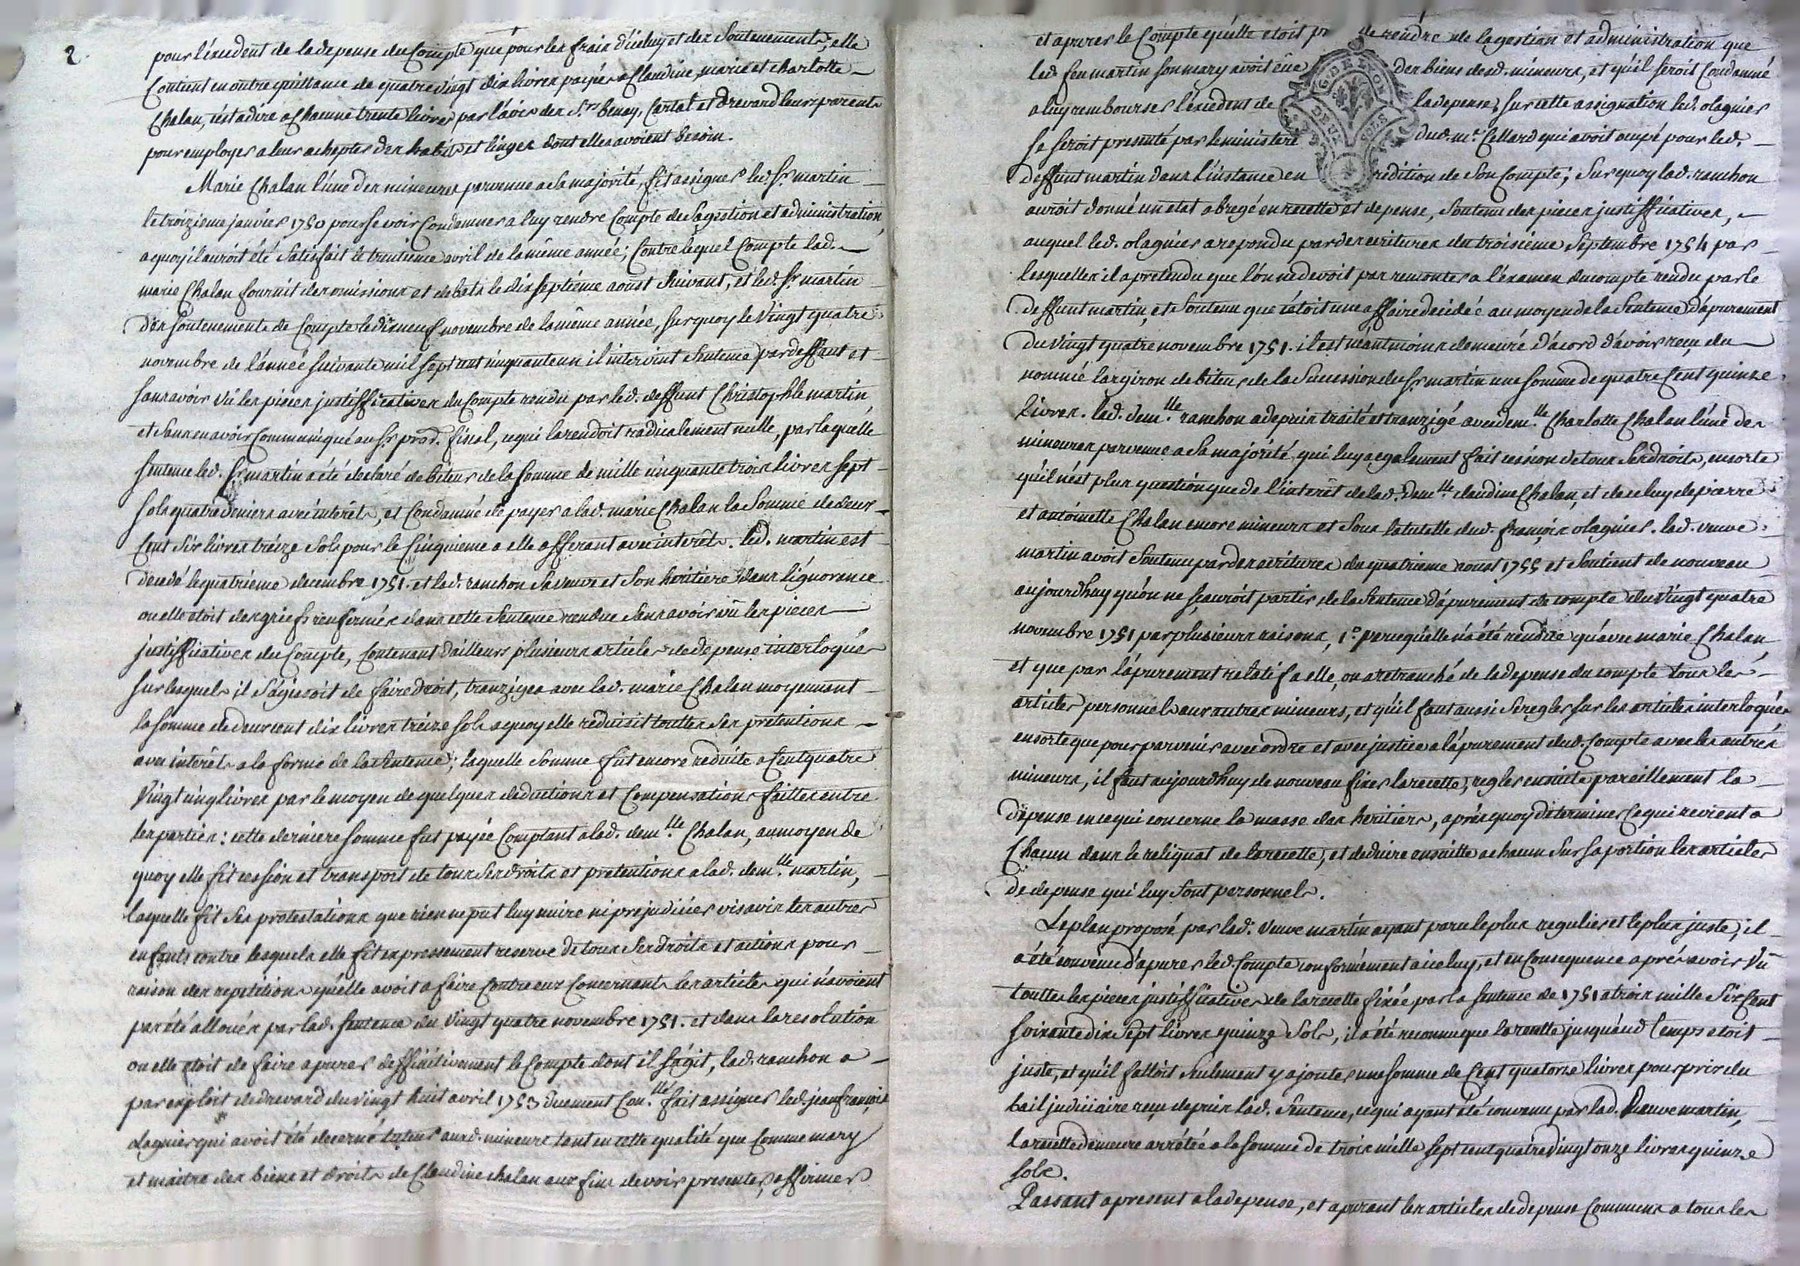 2.
pour l'éxcedent de la depense du Compte que pour les frais d'iceluy et des soutenements; elle
Contient en outre quittance de quatre vingt dix livres payés a Claudine, marie et charlotte
Chalan, c'est a dire a Chacune trente livres par l'avis des Srs. Benay, Carlat et Drevard leurs parents
pour employer a leurs acheptes des habits et linges dont elles avoient besoin.
Marie Chalan l'une des mineures parvenue a sa majorité, fit assigner led. Sr. martin
le troizieme janvier 1750 pour se voir Condamner a luy rendre Compte de sa gestion et administration,
a quoy il auroit été satisfait le trentieme avril de la même année; Contre lequel Compte lad.
marie Chalan fournit des omissions et debats le dix septième aoust suivant, et led. Sr. martin
des soutenements de Compte le dix neuf novembre de la même année, sur quoy le vingt quatre
novembre de l'année suivante mil sept cent cinquante un il intervint sentence par deffaut et
sans avoir vû les pieces justifficatives du Compte rendu par led. deffunt Christophle martin
et sans en avoir Communiqué au Sr. procr. fiscal, ce qui la rendoit radicalement nulle, par laquelle
sentence led. Sr. martin a été declaré debiteur de la somme de mille cinquante trois livres sept
sols quatre deniers avec intérêts, et Condamné de payer a lad. marie Chalan la somme de deux
Cent dix livres treize sols pour le Cinquieme a elle afferant avec intérêts. led. martin est
decedé le quatrieme decembre 1751. et lad. ranchon sa veuve et son heritiere dans l'ignorence
ou elle étoit des griefs renfermés dans cette sentence rendue sans avoir vû les pieces
justifficatives du Compte, Contenant d'ailleurs plusieurs articles de depense interloqués
sur lesquels il s'agissoit de faire droit, tranzigea avec lad. marie Chalan moyennant
la somme de deux cent dix livres treize sols a quoy elle réduisit touttes ses prétentions
avec intérêts a la forme de la sentence; laquelle somme fut encore reduite a Cent quatre
vingt cinq livres par le moyen de quelques deductions et Compensations faittes entre
les parties: cette derniere somme fut payée Comptant a lad. demlle. Chalan, au moyen de
quoy elle fit cession et transport de tous ses droits et pretentions a lad. demlle. martin,
laquelle fit ses protestations que rien ne put luy nuire ni prejudicier vis a vis les autres
enfants contre lesquels elle fit expressement reserve de tous ses droits et actions pour
raison des repetitions qu'elle avoit a faire Contre eux Concernant les articles qui n'avoient
pas été alloués par lad. sentence du vingt quatre novembre 1751. et dans la resolution
ou elle etoit de faire apurer deffinitivement le Compte dont il s'agit, lad. ranchon a
par exploit de drevard du vingt huit avril 1753 duement Conllé. fait assigner led. jean françois
olagnier qui avoit été decerné tuteur auxd. mineurs tant en cette qualité que Comme mary
et maitre des biens et droits de Claudine chalan aux fins de voir presenter, affirmer
et apurer le Compte qu'elle etoit p de rendre de la gestion et administration que
led. feu martin son mary avoit eüe des biens desd. mineurs, et qu'il seroit Condamné
a luy rembourser l'éxcedent de la depense; sur cette assignation led. olagnier
se seroit presenté par le ministere dud. me. Cellard qui avoit occupé pour led.
deffunt martin dans l'instance en reddition de son Compte; sur quoy lad. ranchon
auroit donné un etat abregé en recette et depense, soutenu des pieces justifficatives,
auquel led. olagnier a repondu par des ecritures du troisiéme septembre 1754 par
lesquelles il a pretendu que l'on ne devoit pas remonter a l'éxamen du compte rendu par le
deffunt martin, et soutenu que c'étoit une affaire decidée au moyen de la sentence d'apurement
du vingt quatre novembre 1751. il est neantmoins demeuré d'acord d'avoir reçu du
nommé largiron debiteur de la succession du Sr. martin une somme de quatre Cent quinze
livres. led. demlle. ranchon a depuis traité et tranzigé avec demlle. Charlotte Chalan l'une des
mineures parvenue a sa majorité, qui luy a également fait cession de tous ses droits, ensorte
qu'il n'est plus question que de l'interêt de lad. demlle. claudine Chalan, et de celuy de pierre
et antoinette Chalan encore mineurs et sous la tutelle dud. françois olagnier. lad. veuve
martin avoit soutenu par des ecritures du quatrieme aoust 1755 et soutient de nouveau
aujourdhuy qu'on ne sçauroit partir de la sentence d'apurement de compte du vingt quatre
novembre 1751 par plusieurs raisons, 1°. parce qu'elle n'a été rendüe qu'avec marie Chalan,
et que par l'apurement relatif a elle, on a retranché de la depense du compte tous les
articles personnels aux autres mineurs, et qu'il faut aussi se regler sur les articles interloqués
ensorte que pour parvenir avec ordre et avec justice a l'apurement dud. Compte avec les autres
mineurs, il faut aujourdhuy de nouveau fixer la recette, regler ensuite pareillement la
depense en ce qui concerne la masse des heritiers, aprés quoy determiner ce qui revient a
Chacun dans le reliquat de la recette, et deduire ensuitte a chacun sur sa portion les articles
de depense qui luy sont personnels.
Le plan proposé par lad. veuve martin ayant paru le plus regulier et le plus juste, il
a été convenu d'apurer led. Compte conformément a iceluy, et en consequence aprés avoir vû
touttes les pieces justifficatives de la recette fixée par la sentence de 1751 a trois mille six Cent
soixante dix sept livres quinze sols, il a été reconnu que la recette jusqu'aud. temps etoit
juste, et qu'il falloit seulement y ajouter une somme de Cent quatorze livres pour prix du
bail judiciaire reçu depuis lad. sentence, ce qui ayant été convenu par lad. veuve martin,
la recette demeure arrétée a la somme de trois mille sept cent quatre vingt onze livres quinze
sols.
Passant a present a la depense, et apurant les articles de depense Communs a tous les